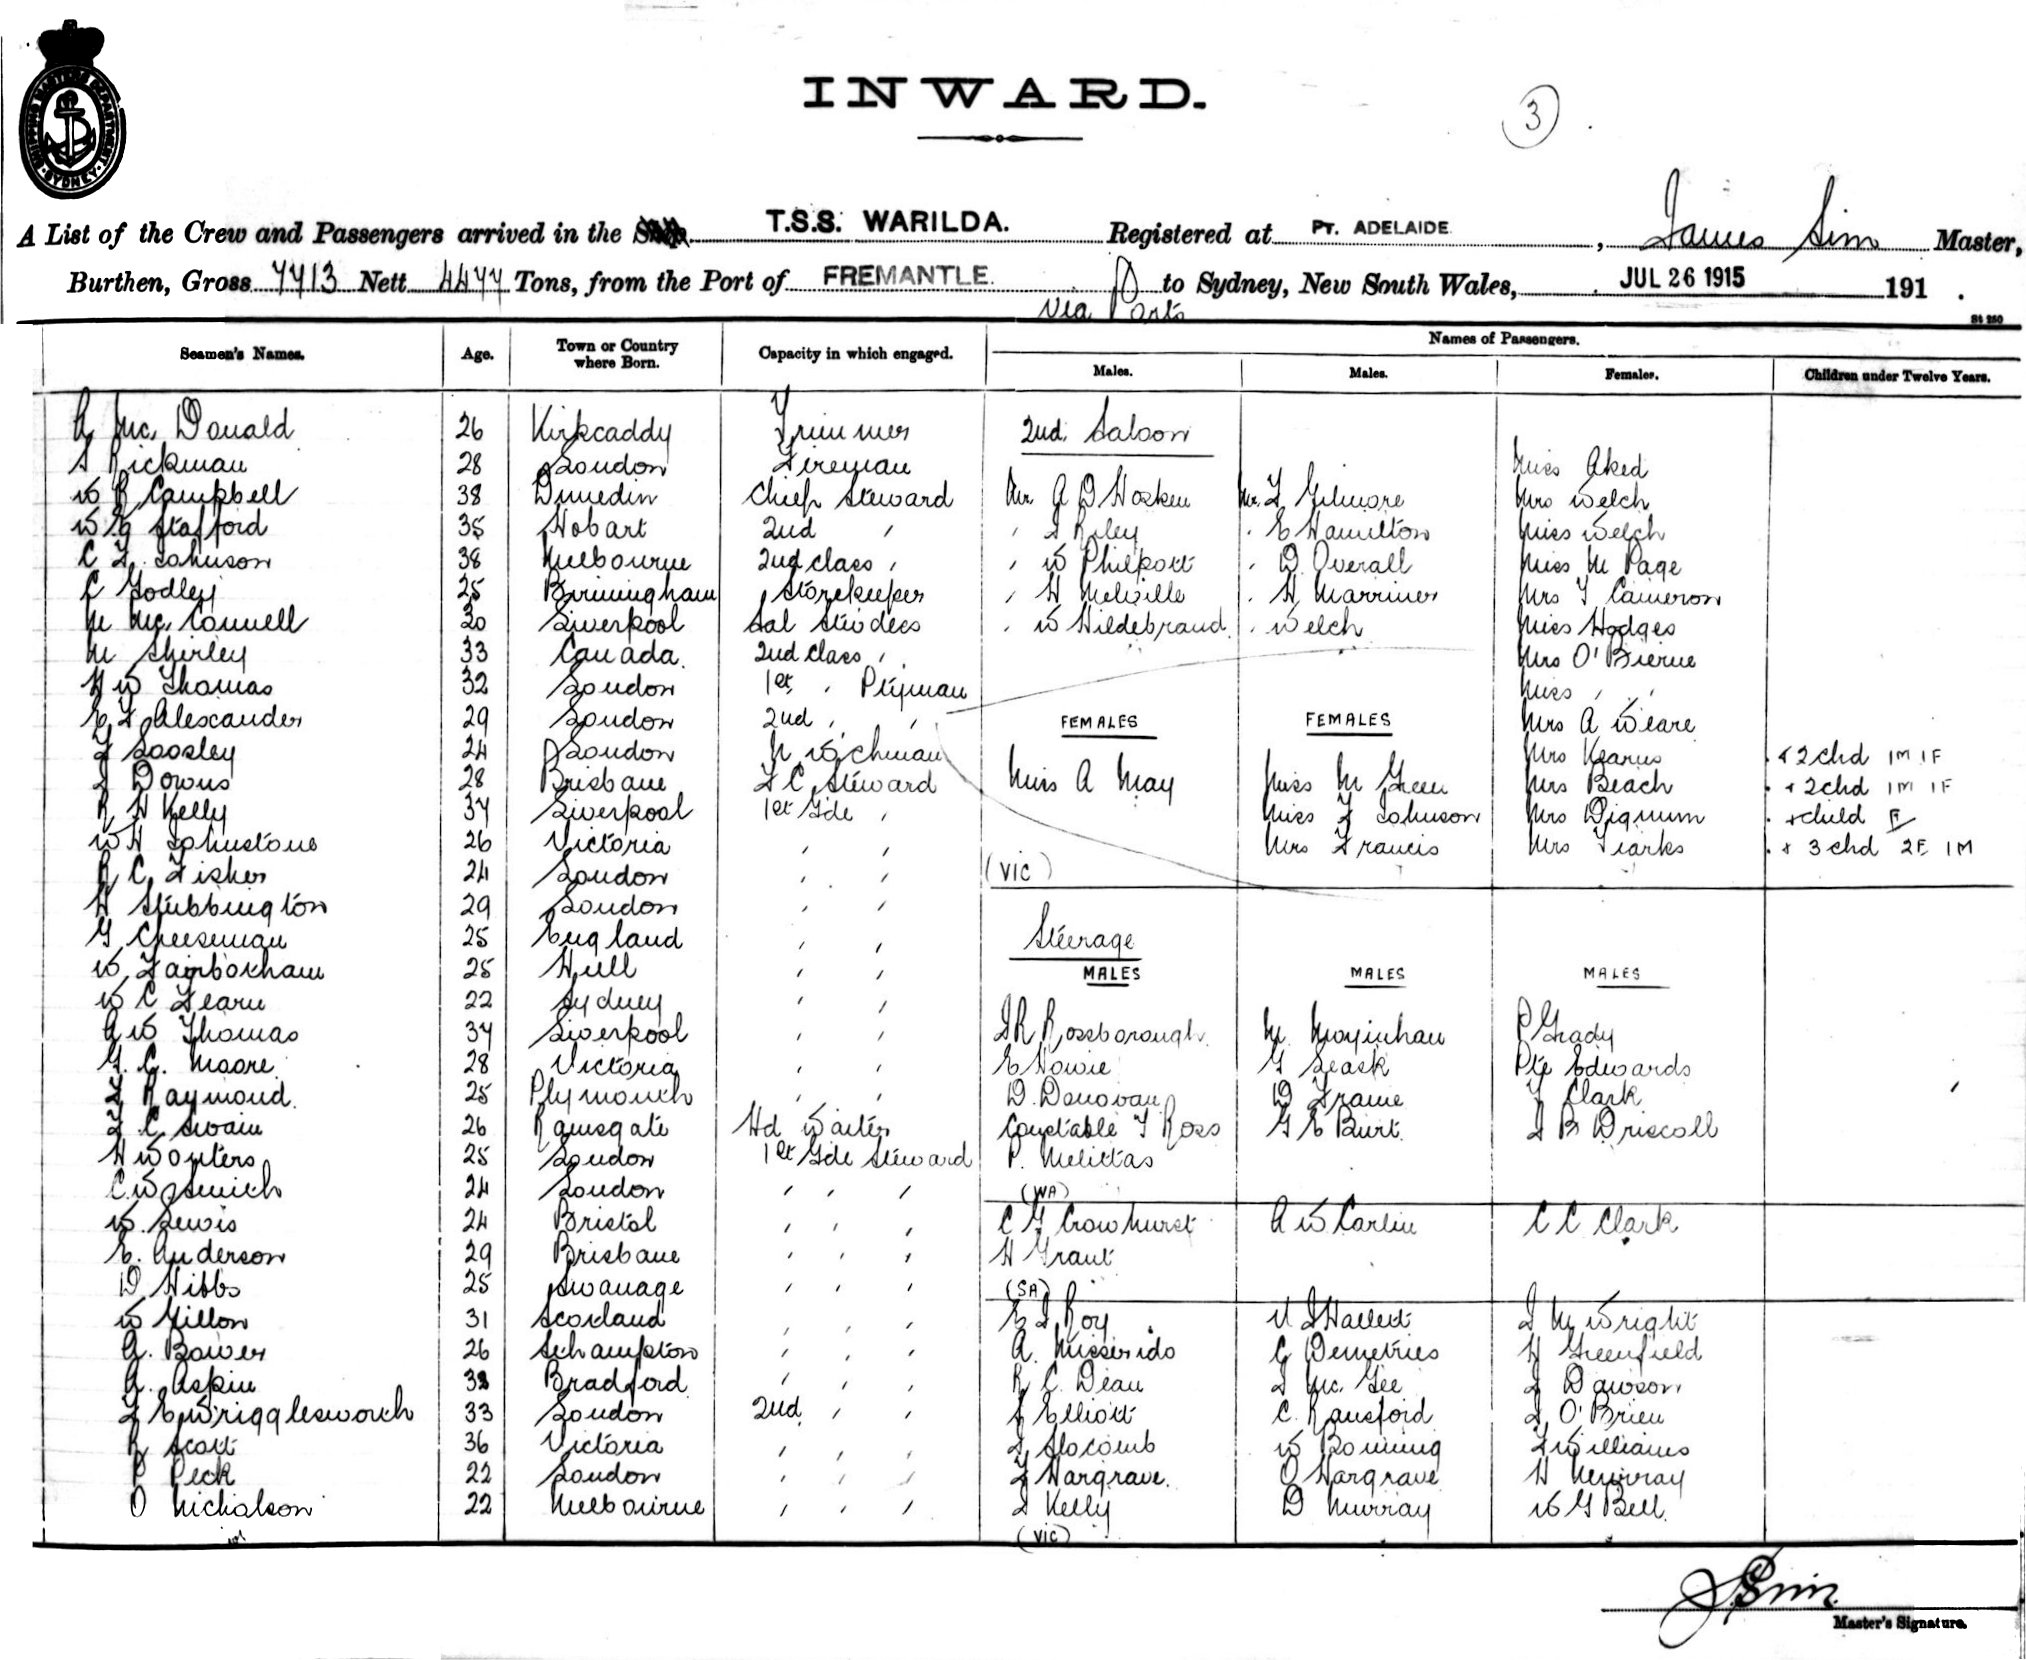 SHIPPING MASTERS DEPARTMENT SYDNEY
INWARD.
3
A List of the Crew and Passengers arrived in the T.S.S. WARILDA. Registered at PT. ADELAIDE, James Sim Master,
Burthen, Gross 7713 Nett 4477 Tons, from the Port of FREMANTLE. via Ports to Sydney, New South Wales, JUL 26 1915 191 .
St 250
Seamen's Names. Age. Town or Country where Born. Capacity in which engaged. Names of Passengers.
Males. Males. Females. Children under Twelve Years.
A Mc. Donald 26 Kirkcaddy Trimmer 2nd. Saloon
S Rickman 28 London Fireman Miss Aked
W R Campbell 38 Dunedin Chief Steward Mr. A D Hosken Mr. F Gilmore Mrs Welch
W G Stafford 35 Hobart 2nd " " J Riley " E Hamilton Miss Welch
C F Johnson 38 Melbourne 2nd class " " W Philpott " D. Overall Miss M Page
C Godley 25 Birmingham Storekeeper " H Melville " H Marriner Mrs T Cameron
M Mc. Connell 30 Liverpool Sal Stewdess " W Hildebrand " Welch Miss Hodges
M Shirley 33 Canada. 2nd class " Mrs O'Bierne
H W Thomas 32 London 1st " Ptyman Miss " "
E F Alexander 29 London 2nd " " FEMALES FEMALES Mrs A Weare
F Loosley 24 London N Wchman Mrs Kearns + 2 chd 1M 1F
J Downs 28 Brisbane F C Steward Miss A May Miss M Green Mrs Beach + 2 chd 1M 1F
R H Kelly 37 Liverpool 1st Gde " Miss F Johnson Mrs Dignum + child F
W H Johnstone 26 Victoria " " Mrs Francis Mrs Tiarks + 3 chd 2F 1M
R C Fisher 24 London " " (VIC)
H Stubbington 29 London " "
G Cheeseman 25 England " " Steerage
W Fairbotham 25 Hull " " MALES MALES MALES
W C Fearn 22 Sydney " "
A W Thomas 37 Liverpool " " J R Rossborough. M. Moyinhan P Grady
G. C. Moore 28 Victoria " " E Howie G Leask Pte Edwards
F Raymond. 25 Plymouth " " D. Donovan D Frame F Clark
F C Swain 26 Ramsgate Hd Waiter Constable T Ross G E Burt. J B Driscoll
H Wouters 25 London 1st Gde Steward P. Melittas
C W Smith 24 London " " " (WA)
W. Lewis 24 Bristol " " " C G Crowhurst A W Carlin C C Clark
E. Anderson 29 Brisbane " " " H Grant
D Hibbs 25 Swanage " " " (SA)
W Gillon 31 Scotland " " " E J Roy J M Wright
A. Bower 26 Sthampton " " " A. Misserido C Demetries H Greenfield
A. Askin Bradford " " " R C. Dean J Mc. Gee J Dawson
F E Wrigglesworth 33 London 2nd " " J Elliott C. Ransford J O'Brien
R Scott 36 Victoria " " " J Slocomb W Bonning F Williams
P Peck 22 London " " " F Hargrave. O Hargrave H Murray
O Nicholson 22 Melbourne " " " J Kelly D Murray W G Bell.
(VIC)
J Sim
Master's Signature.